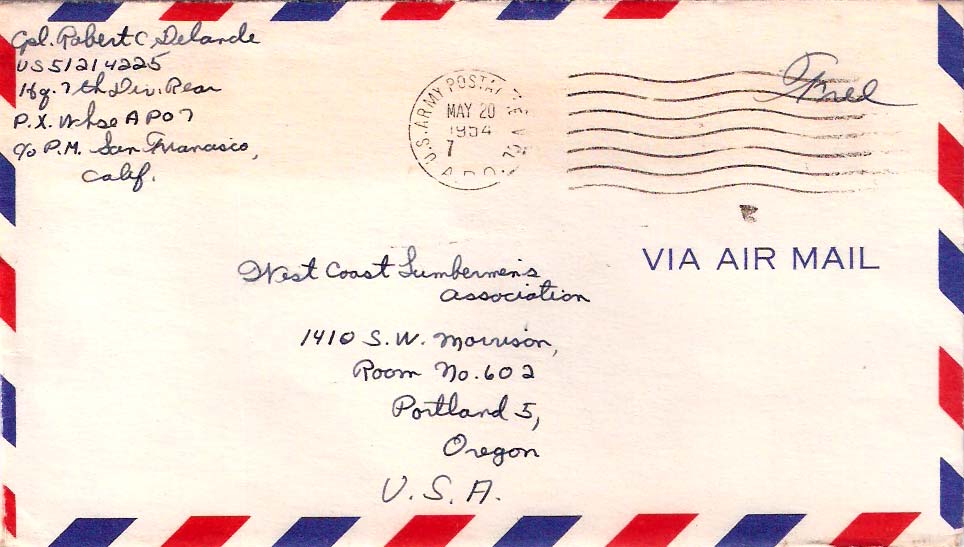 Cpl. Robert C. Delande
US51214225
Hq. 7th Div. Rear
P.X. Whse APO 7
c/o P.M. San Francisco,
Calif.
U.S. ARMY POSTAL
MAY 20
1954
7
A.P.O.
Free
VIA AIR MAIL
West Coast Lumbermen's
Association
1410 S.W. Morrison,
Room No. 602
Portland 5,
Oregon
U.S.A.